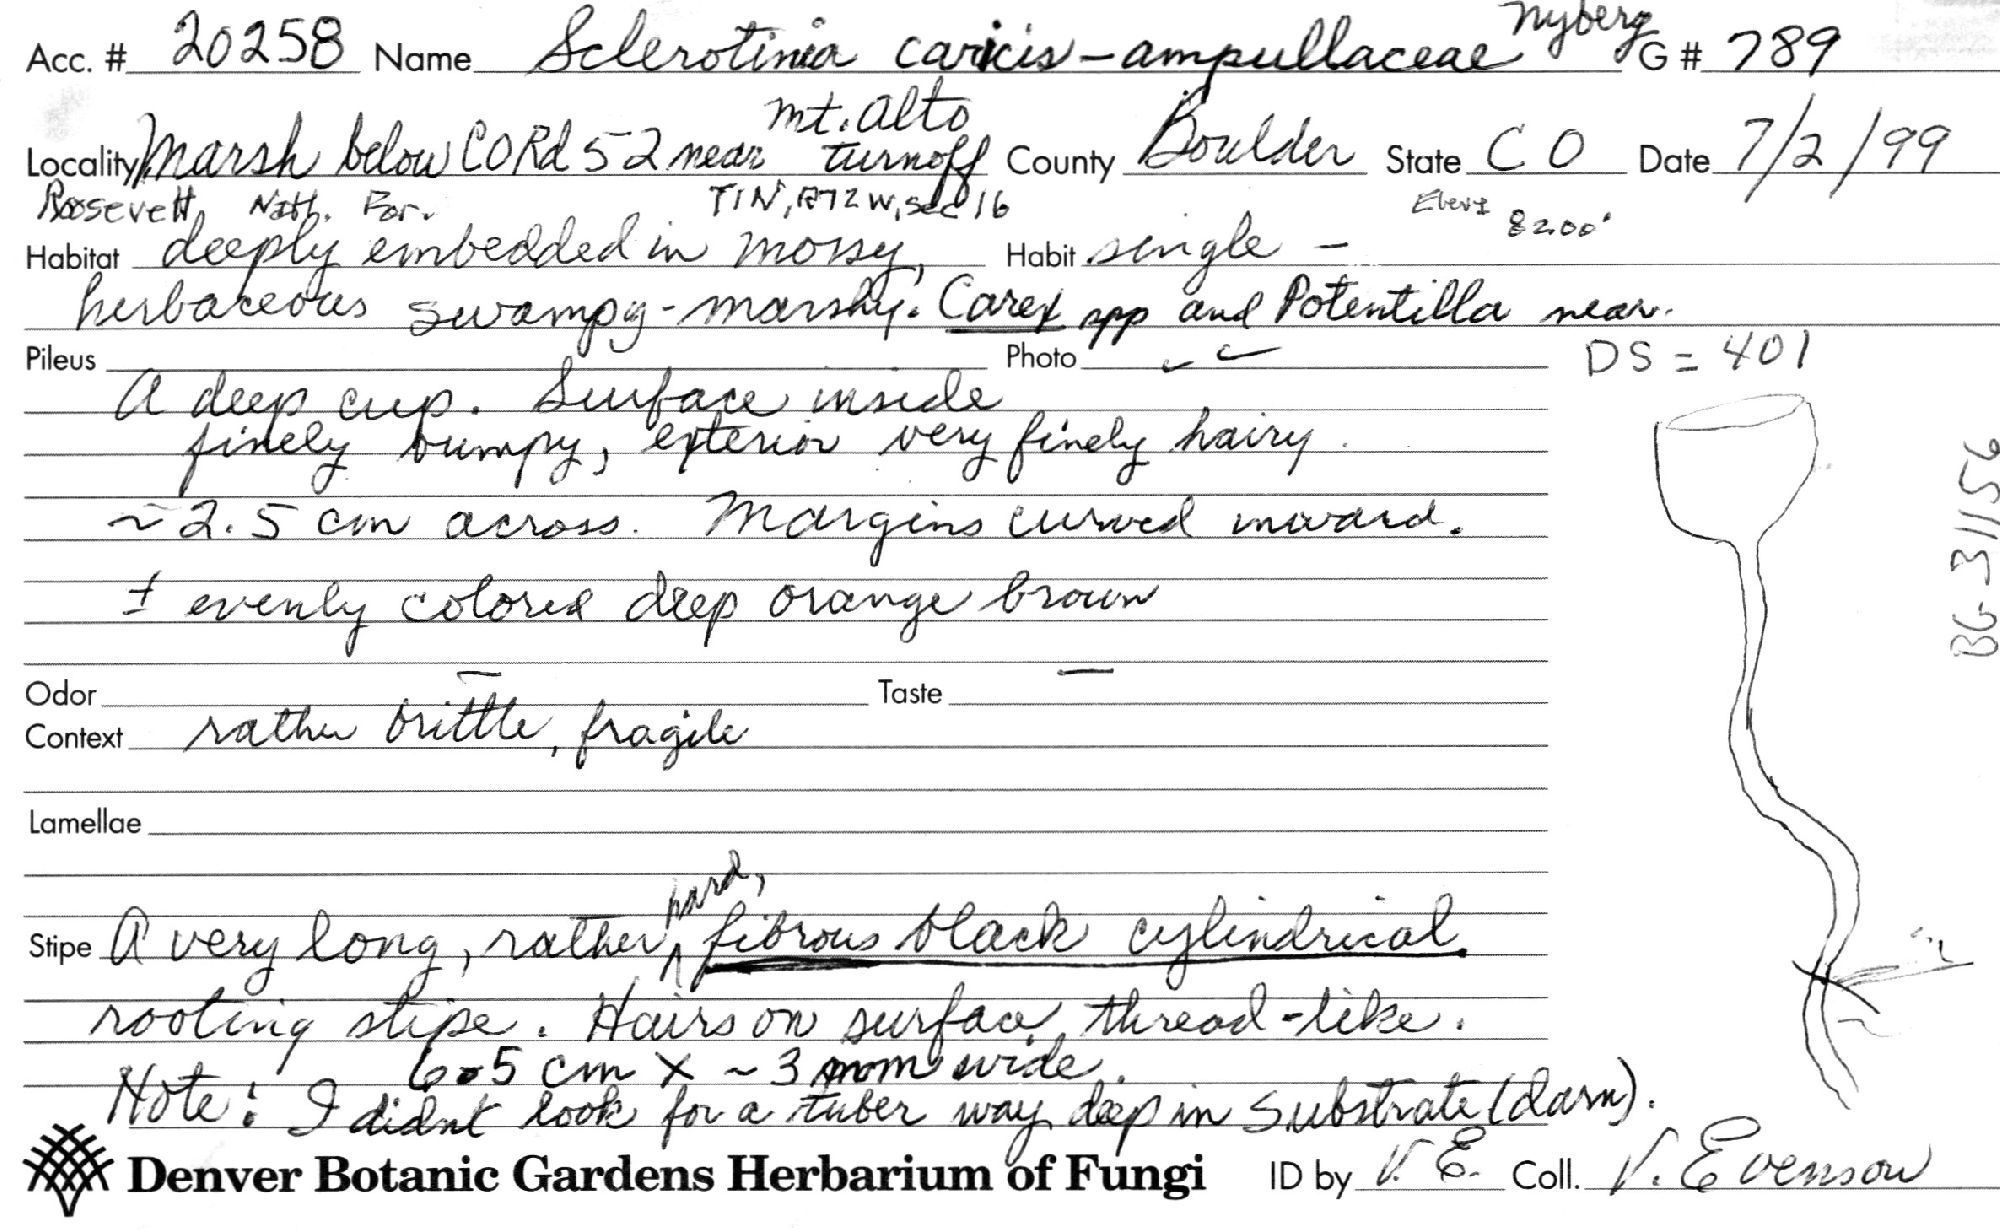 Nyberg
Acc. # 20258 Name Sclerotinia caricis-ampullaceae G # 789
Mt. Alto
Locality Marsh below CO Rd 52 near turnoff County Boulder State CO Date 7/2/99
Roosevelt Natl. For. T1N, R72W, sec 16 Elev. 8200'
Habitat deeply embedded in mossy, Habit single –
herbaceous swampy-marshy. Carex spp and Potentilla near.
Pileus Photo ✓ ✓ DS = 401
A deep cup. Surface inside
finely bumpy, exterior very finely hairy.
~2.5 cm across. Margins curved inward.
± evenly colored deep orange brown
BG-31156
Odor — Taste —
Context rather brittle, fragile
Lamellae
hard,
Stipe A very long, rather ^ fibrous black cylindrical
rooting stipe. Hairs on surface, thread-like.
6.5 cm X ~3 mm wide.
Note: I didnt look for a tuber way deep in substrate (darn).
Denver Botanic Gardens Herbarium of Fungi ID by V. E. Coll. V. Evenson